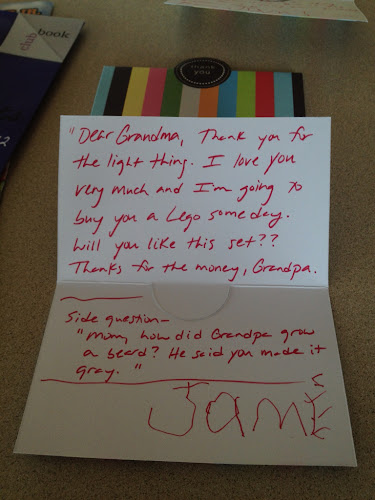 club book
thank
you
"Dear Grandma, Thank you for
the light thing. I love you
very much and I'm going to
buy you a Lego someday.
Will you like this set??
Thanks for the money, Grandpa.
Side question-
"Mom, how did Grandpa grow
a beard? He said you made it
gray."
JAME